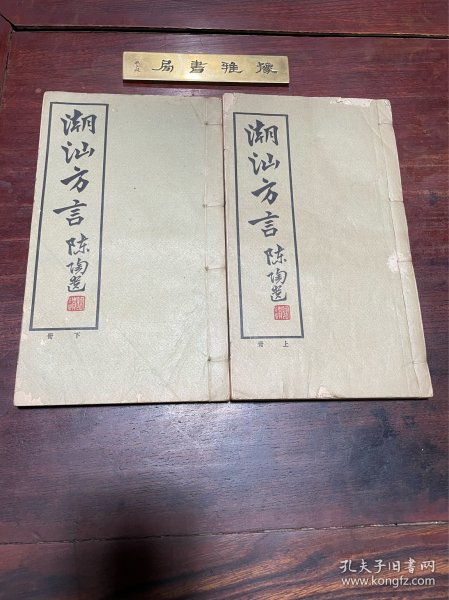 豫雅書局
潮汕方言
陈陶選
下冊
潮汕方言
陈陶選
上冊
孔夫子旧书网
www.kongfz.com